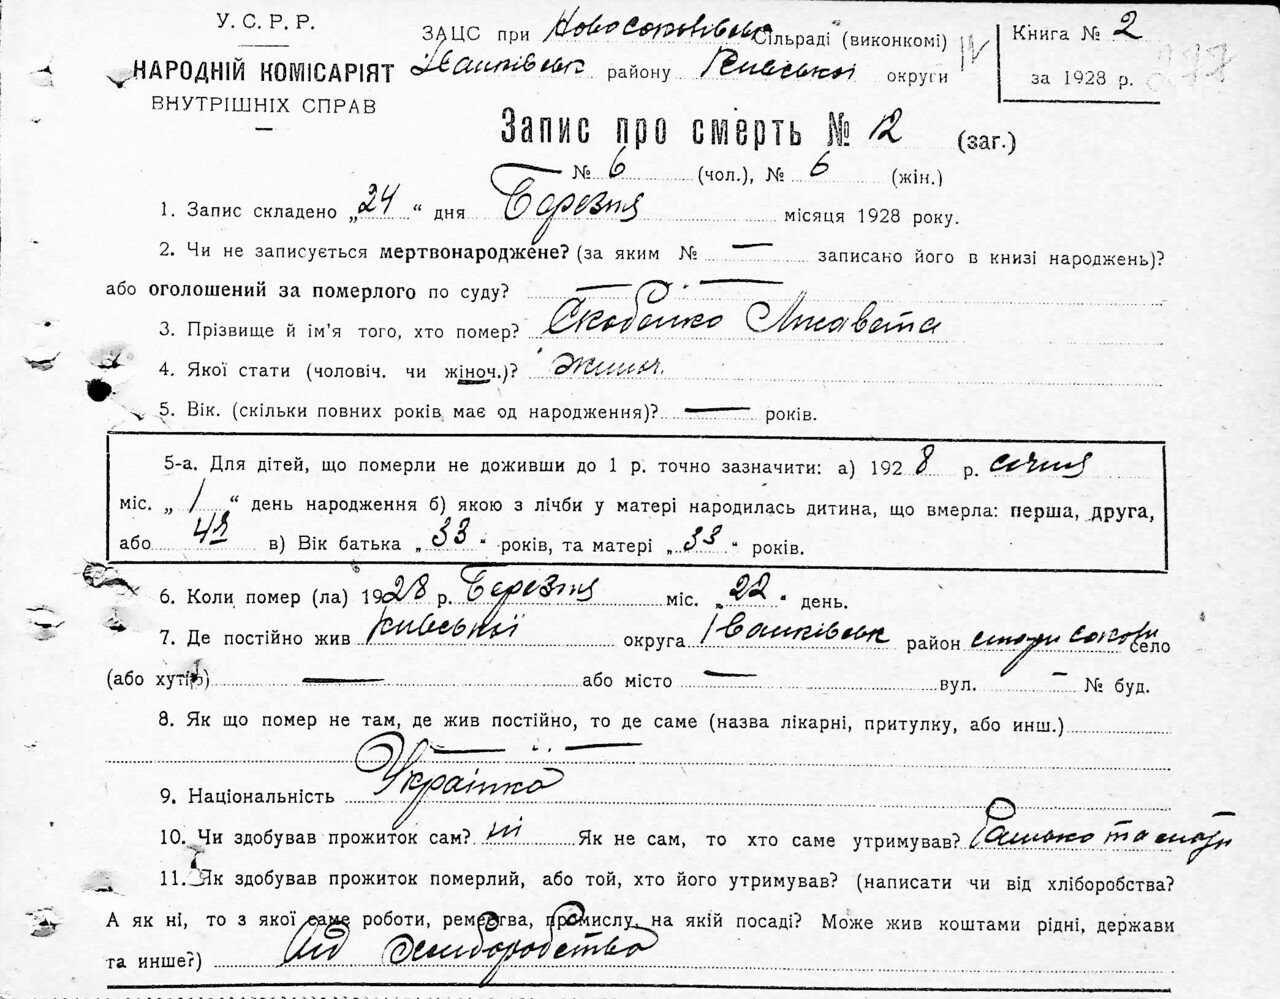 У. С. Р. Р.
НАРОДНІЙ КОМІСАРІЯТ
ВНУТРІШНІХ СПРАВ
ЗАЦС при Новосоколівськ Сільраді (виконкомі)
Іванківськ району Київської округи
Книга № 2
за 1928 р. 277
Запис про смерть № 12 (заг.)
№ 6 (чол.), № 6 (жін.)
1. Запис складено „24“ дня Березня місяця 1928 року.
2. Чи не записується мертвонароджене? (за яким № — записано його в книзі народжень)?
або оголошений за померлого по суду? — —
3. Прізвище й ім’я того, хто помер? Скобенко Лисавета
4. Якої стати (чоловіч. чи жіноч.)? жіноч.
5. Вік. (скільки повних років має од народження)? — років.
5-а. Для дітей, що померли не доживши до 1 р. точно зазначити: а) 1928 р. січня
міс. „1“ день народження б) якою з лічби у матері народилась дитина, що вмерла: перша, друга,
або 4я в) Вік батька „33“ років, та матері „33“ років.
6. Коли помер (ла) 1928 р. Березня міс. „22“ день.
7. Де постійно жив Київської округа Іванківськ район село
(або хутір) — або місто — вул. — № буд.
8. Як що помер не там, де жив постійно, то де саме (назва лікарні, притулку, або инш.)
— —
9. Національність Українка
10. Чи здобував прожиток сам? ні Як не сам, то хто саме утримував? Батько та мати
11. Як здобував прожиток померлий, або той, хто його утримував? (написати чи від хліборобства?
А як ні, то з якої саме роботи, ремества, промислу, на якій посаді? Може жив коштами рідні, держави
та инше?) Від хліборобства